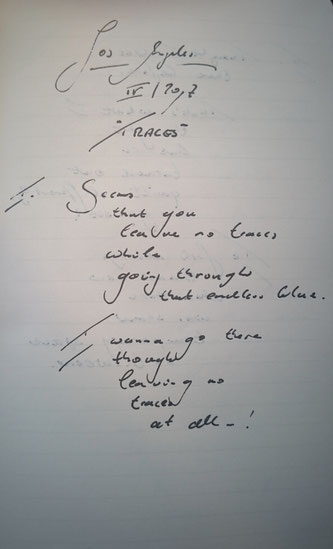 Los Angeles
IV / 2017
"TRACES"
Seems
that you
leave no traces
while
going through
that endless blue.
I wanna go there
though
leaving no
traces
at all - !